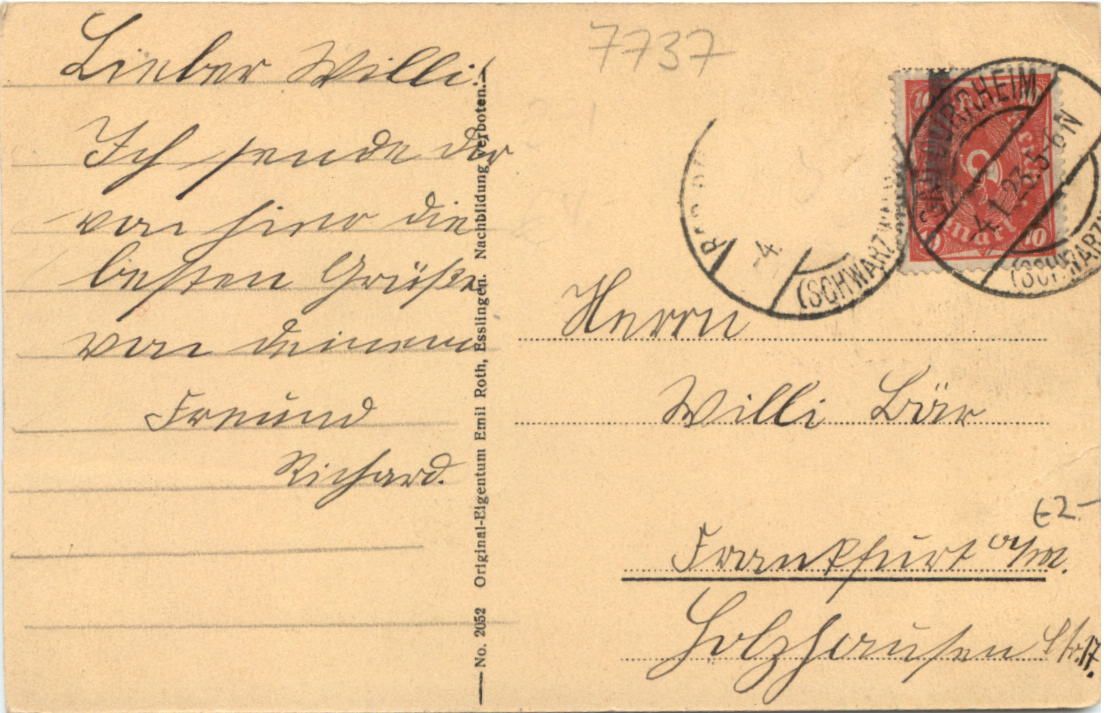 7737
Lieber Willi!
Ich sende dir
von hier die
besten Grüße
von deinem
Freund
Richard.
No. 2052 Original-Eigentum Emil Roth, Esslingen. Nachbildung verboten.
10 10
10 Mark 10
4.1.23.5-6N
(SCHWARZW
4.
(SCHWARZW
Herrn
Willi Bär
€2-
Frankfurt a/m.
Holzhausen Str. 17.